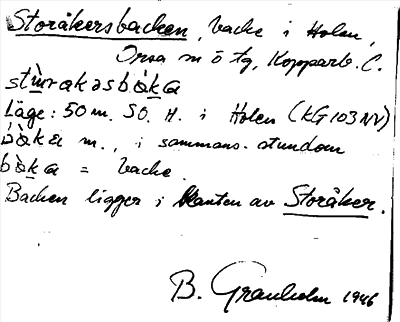 Storåkersbacken, backe i Holen,
Orsa m ö tg, Kopparb. C.
stùrakəsbàka
Läge: 50 m. SO. H. i Holen (KG 103 NV)
bàka m., i sammans. stundom
bàka = backe.
Backen ligger i kanten av Storåker.
B. Granholm 1946